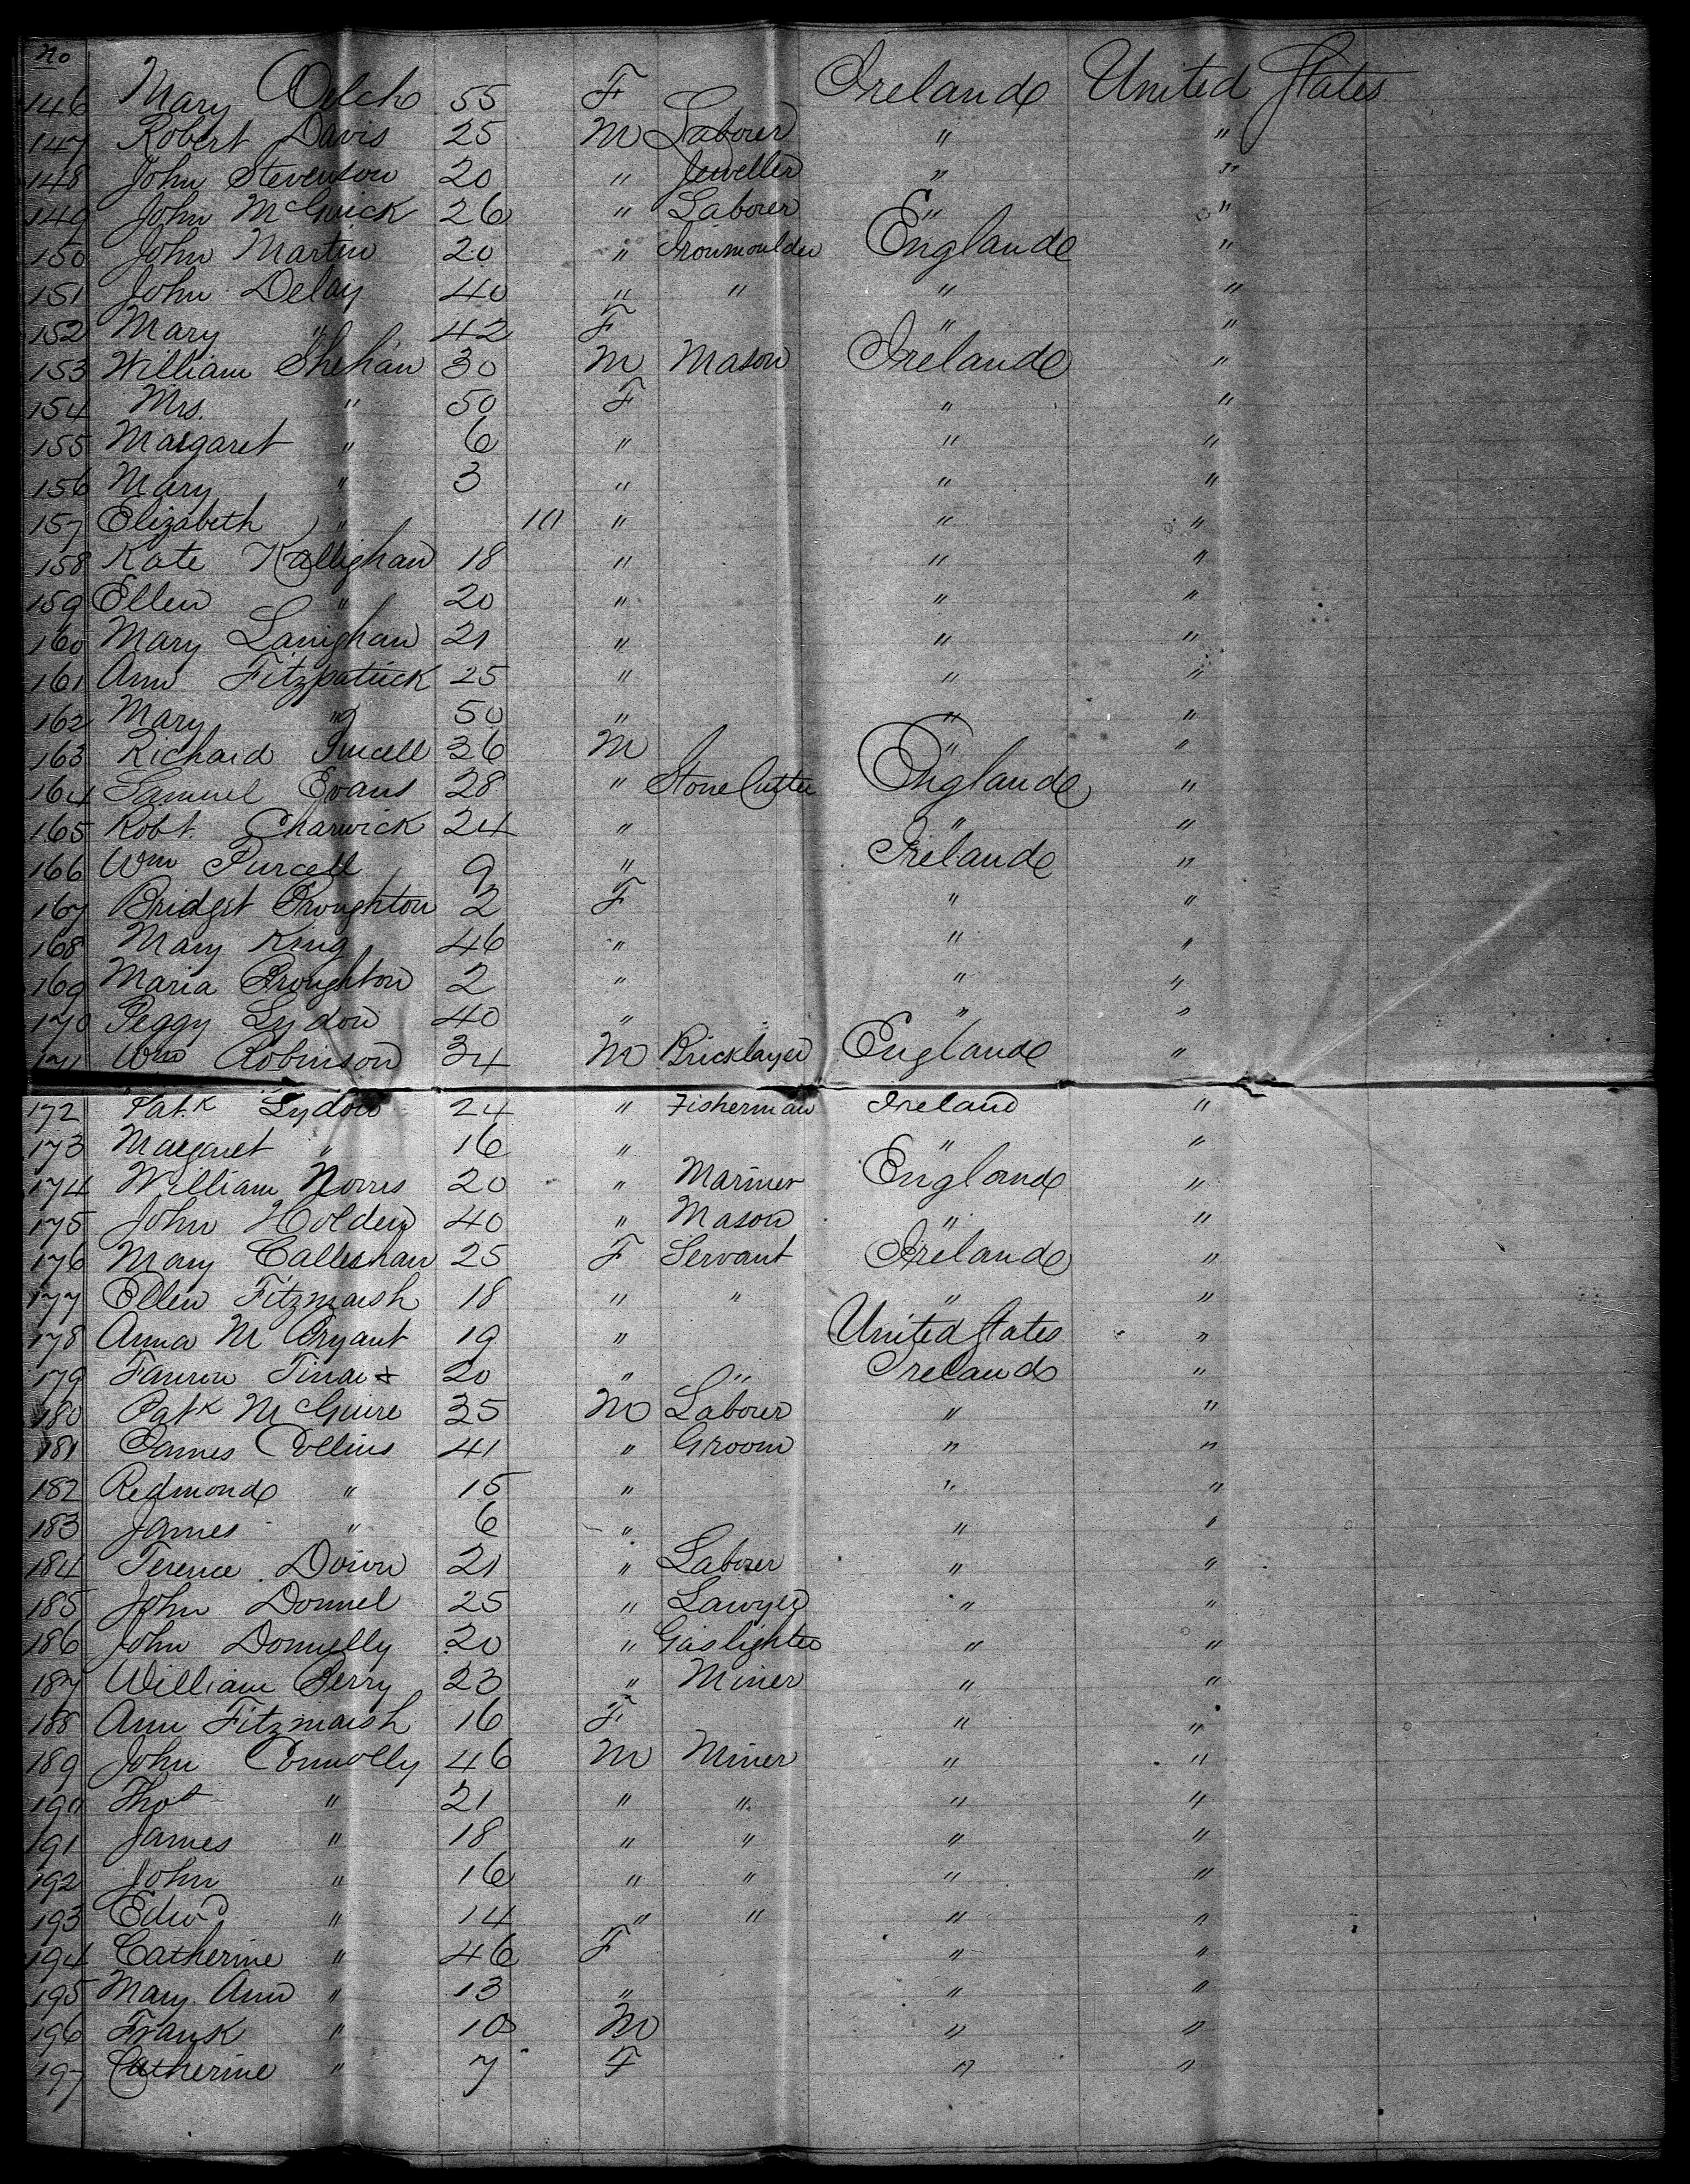 No
146 Mary Welch 55 F Ireland United States
147 Robert Davis 25 M Laborer " "
148 John Stevenson 20 " Jeweller " "
149 John McGuick 26 " Laborer " "
150 John Martin 20 " Ironmoulder England "
151 John Delay 40 " " " "
152 Mary " 42 F " "
153 William Shehan 30 M Mason Ireland "
154 Mrs. " 50 F " "
155 Margaret " 6 " " "
156 Mary " 3 " " "
157 Elizabeth " " " "
158 Kate Kallighan 18 " " "
159 Ellen " 20 " " "
160 Mary Lanighan 21 " " "
161 Ann Fitzpatrick 25 " " "
162 Mary " 50 " " "
163 Richard Purcell 36 M " "
164 Samuel Evans 28 " Stone Cutter England "
165 Robt. Charwick 24 " " "
166 Wm Purcell 9 " Ireland "
167 Bridget Broughton 2 F " "
168 Mary King 46 " " "
169 Maria Broughton 2 " " "
170 Peggy Lydon 40 " " "
171 Wm Robinson 34 M Bricklayer England "
172 Patk Lydon 24 " Fisherman Ireland "
173 Margaret " 16 " " "
174 William Norris 20 " Mariner England "
175 John Holden 40 " Mason " "
176 Mary Calleghan 25 F Servant Ireland "
177 Ellen Fitzmarsh 18 " " " "
178 Anna M Bryant 19 " United States "
179 20 " " Ireland "
180 Patk McGuire 35 M Laborer " "
181 James Collins 41 " Groom " "
182 Redmond " 15 " " "
183 James " 6 " " "
184 Terence Down 21 " Laborer " "
185 John Donnel 25 " Lawyer " "
186 John Donnelly 20 " Gaslighter " "
187 William Berry 23 " Miner " "
188 Ann Fitzmarsh 16 F " "
189 John Connolly 46 M Miner " "
190 Thos " 21 " " " "
191 James " 18 " " " "
192 John " 16 " " " "
193 Edwd " 14 " " " "
194 Catherine " 46 F " "
195 Mary Ann " 13 " " "
196 Frank " 10 M " "
197 Catherine " 7 F " "